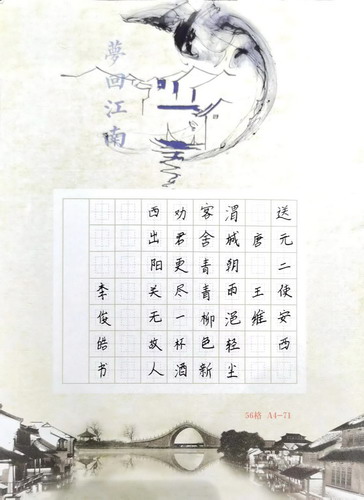 夢回江南
送元二使安西
唐 王维
渭城朝雨浥轻尘
客舍青青柳色新
劝君更尽一杯酒
西出阳关无故人
李俊皓书
56格 A4-71